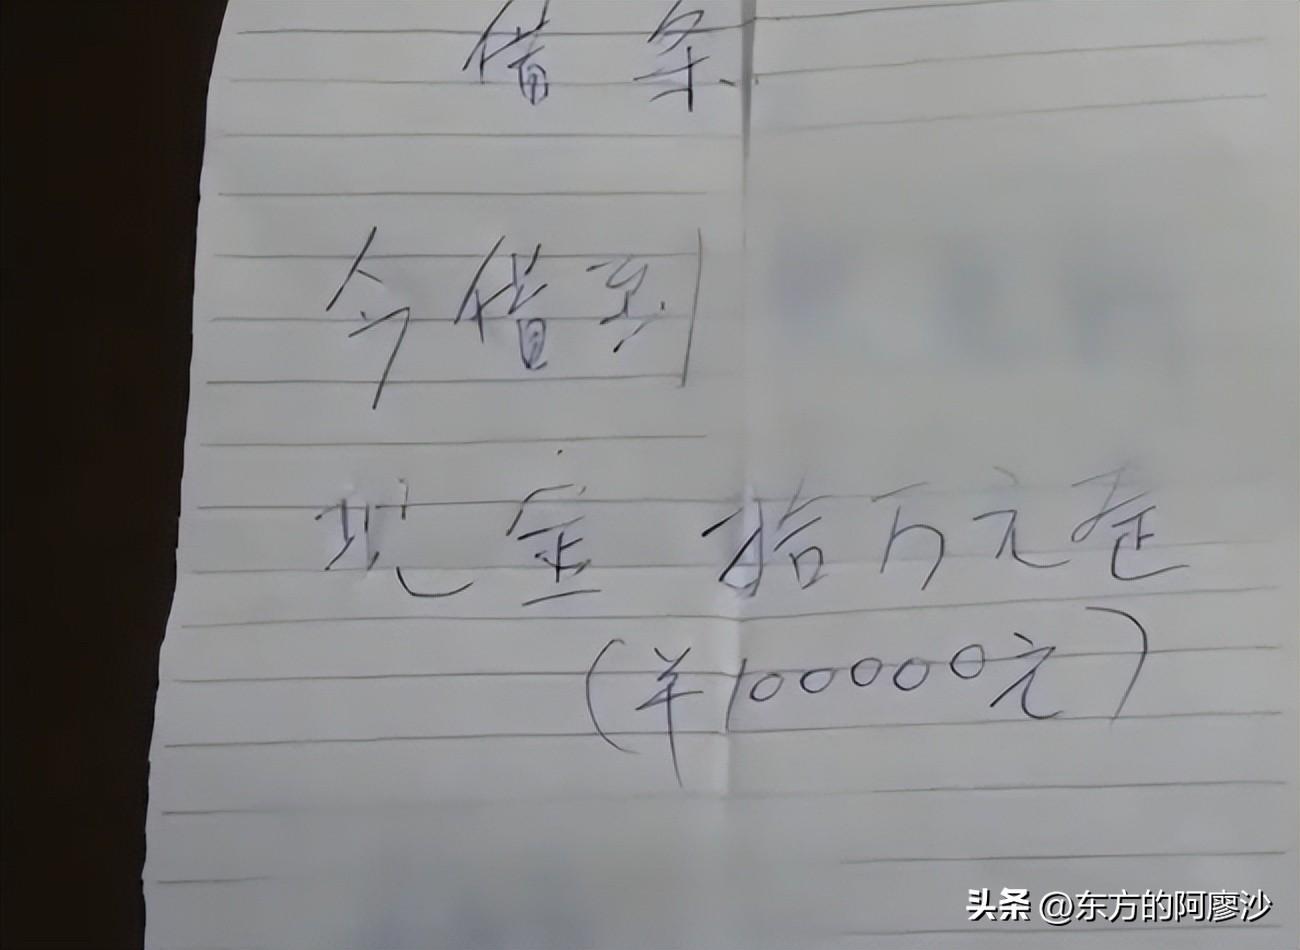 借条
今借到
现金拾万元整
(¥100000元)
头条 @东方的阿廖沙